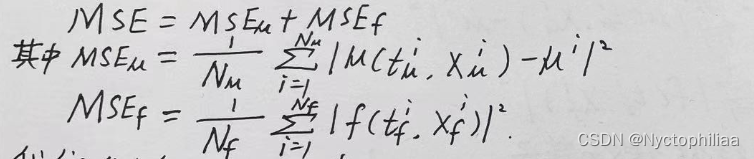 MSE = MSE_μ + MSE_f
其中 MSE_μ = \frac{1}{N_μ} \sum_{i=1}^{N_μ} |μ(t_μ^i, x_μ^i) - μ^i|^2
MSE_f = \frac{1}{N_f} \sum_{i=1}^{N_f} |f(t_f^i, x_f^i)|^2.
CSDN @Nyctophiliaa